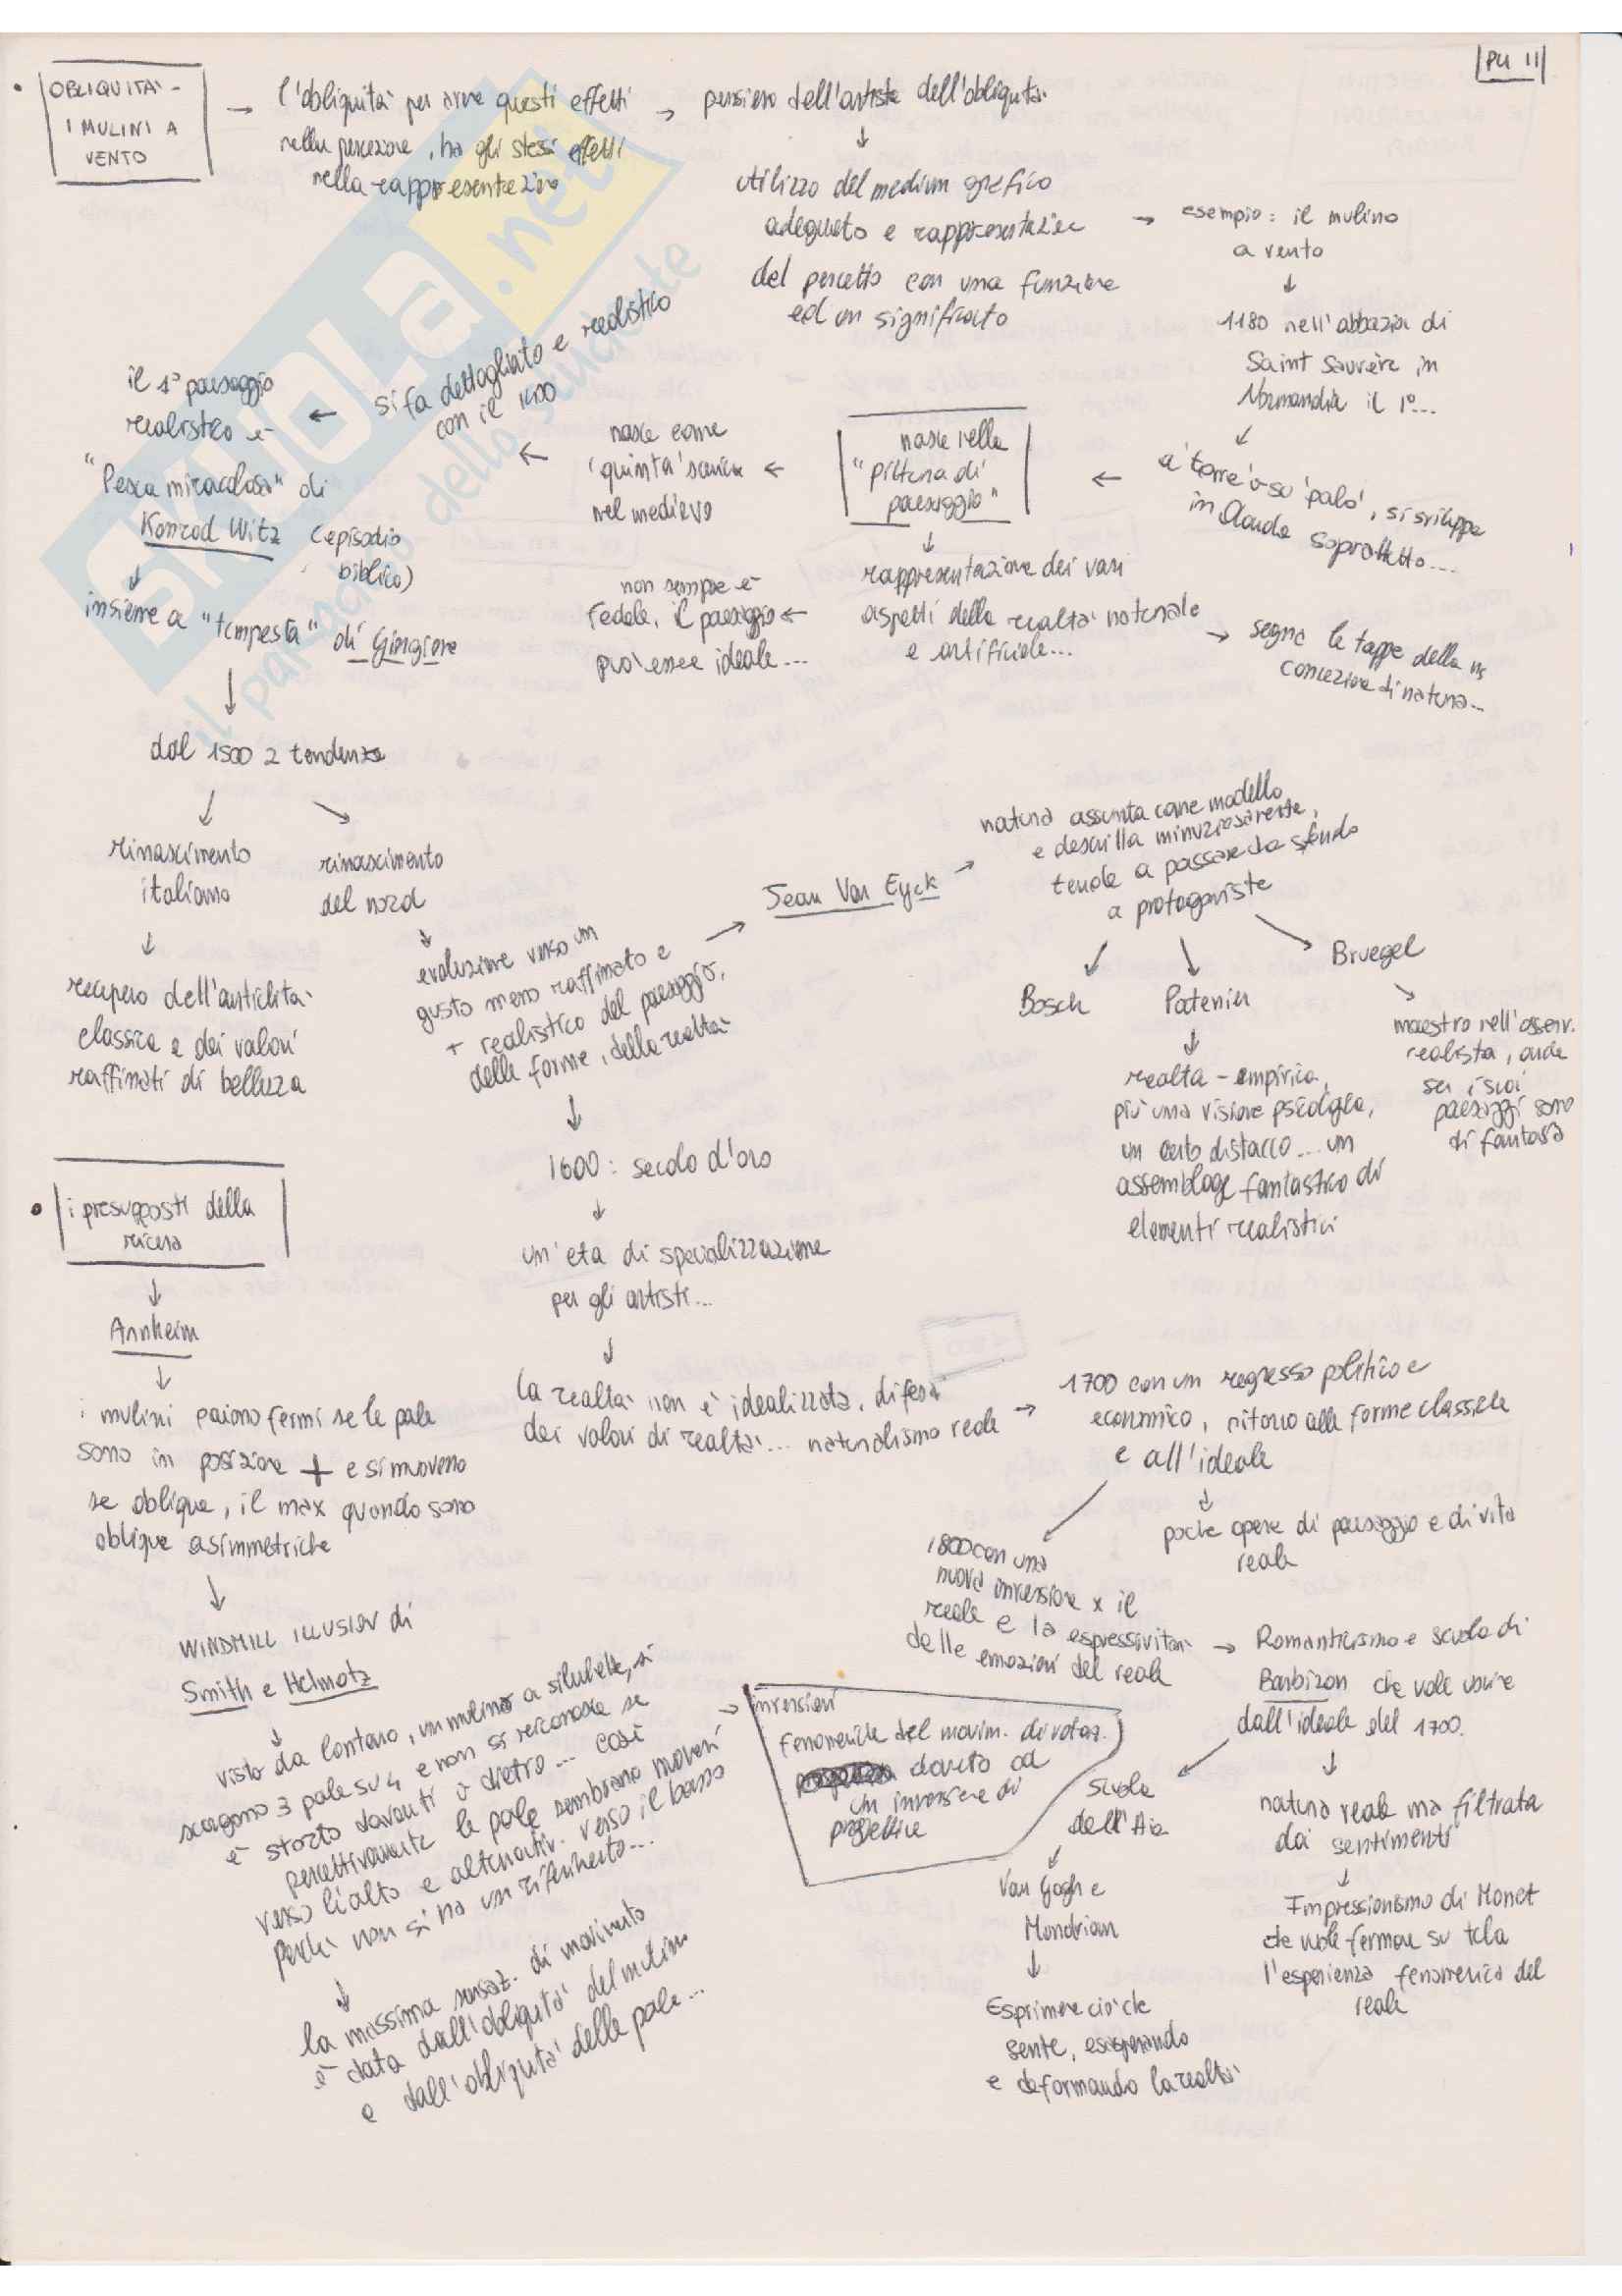 PU 11
OBLIQUITÀ -
I MULINI A
VENTO
→ l'obliquità per avere questi effetti
nella percezione, ha gli stessi effetti
nella rappresentazione
→ pensiero dell'artista dell'obliquità.
↓
utilizzo del medium grafico
adeguato e rappresentazione
del percetto con una funzione
ed un significato
→ esempio: il mulino
a vento
↓
1180 nell'abbazia di
Saint Sauvère in
Normandia il 1°...
↓
a 'torre' o su 'palo', si sviluppa
in Olanda soprattutto...
←
nasce nella
"pittura di
paesaggio"
← nasce come
'quinta' scenica
nel medievo
←
si fa dettagliato e realistico
con il 1400
←
il 1° paesaggio
realistico è
"Pesca miracolosa" di
Konrad Witz (episodio
biblico)
↓
insieme a "tempesta" di Giorgione
↓
rappresentazione dei vari
aspetti della realtà naturale
e artificiale...
← non sempre è
fedele, il paesaggio
può essere ideale...
→ segna le tappe della ns
concezione di natura...
dal 1500 2 tendenze
rinascimento
italiano
↓
recupero dell'antichità
classica e dei valori
raffinati di bellezza
rinascimento
del nord
↓
evoluzione verso un
gusto meno raffinato e
+ realistico del paesaggio,
delle forme, della realtà
→ Jean Van Eyck →
natura assunta come modello
e descritta minuziosamente,
tende a passare da sfondo
a protagonista
Bosch
Patenier
↓
realtà - empirica,
più una visione psicologica,
un certo distacco... un
assemblage fantastico di
elementi realistici
Bruegel
↓
maestro nell'osserv.
realista, anche
se i suoi
paesaggi sono
di fantasia
↓
1600: secolo d'oro
↓
un'età di specializzazione
per gli artisti...
↓
la realtà non è idealizzata, difesa
dei valori di realtà... naturalismo reale
→ 1700 con un regresso politico e
economico, ritorno alle forme classiche
e all'ideale
↓
poche opere di paesaggio e di vita
reale
1800 con una
nuova immersione x il
reale e la espressività
delle emozioni del reale
→ Romanticismo e scuola di
Barbizon che vole uscire
dall'ideale del 1700.
↓
natura reale ma filtrata
dai sentimenti
↓
Impressionismo di Monet
che vuole fermare su tela
l'esperienza fenomenica del
reale
scuola
dell'Aia
↓
Van Gogh e
Mondrian
↓
Esprimere ciò che
sente, esasperando
e deformando la realtà
i presupposti della
ricerca
↓
Arnheim
↓
i mulini paiono fermi se le pale
sono in posizione + e si muovono
se oblique, il max quando sono
oblique asimmetriche
↓
WINDMILL ILLUSION di
Smith e Helmotz
↓
visto da lontano, un mulino a silhouette, si
scorgono 3 pale su 4 e non si riconosce se
è storto davanti o dietro... così
percettivamente le pale sembrano muoversi
verso l'alto e alternativ. verso il basso
perché non si ha un riferimento...
→ inversioni
fenomeniche del movim. di rotaz.
dovuto ad
un inversione di
prospettiva
↓
la massima sensaz. di movimento
è data dall'obliquità del mulino
e dall'obliquità delle pale...
SKUOLA.net
il paradiso dello studente